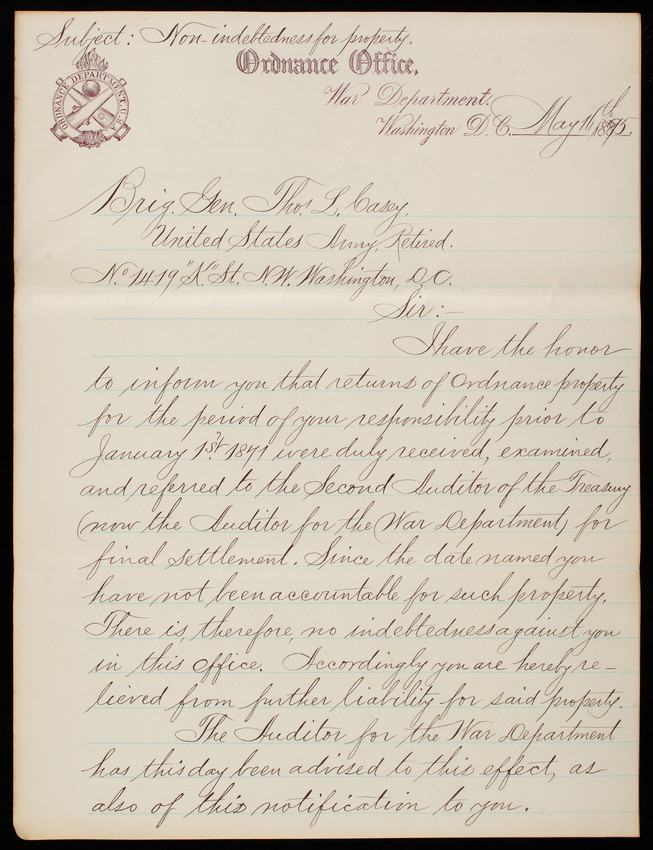 Subject: Non-indebtedness for property.
Ordnance Office,
War Department.
ORDNANCE DEPARTMENT, U.S.
Washington D.C. May 16th 1895.
Brig. Gen. Thos. L. Casey,
United States Army, Retired.
No. 1419 "K" St. N.W. Washington, D.C.
Sir:-
I have the honor
to inform you that returns of Ordnance property
for the period of your responsibility prior to
January 1st 1871 were duly received, examined,
and referred to the Second Auditor of the Treasury
(now the Auditor for the War Department) for
final settlement. Since the date named you
have not been accountable for such property.
There is, therefore, no indebtedness against you
in this office. Accordingly you are hereby re-
lieved from further liability for said property.
The Auditor for the War Department
has this day been advised to this effect, as
also of this notification to you.